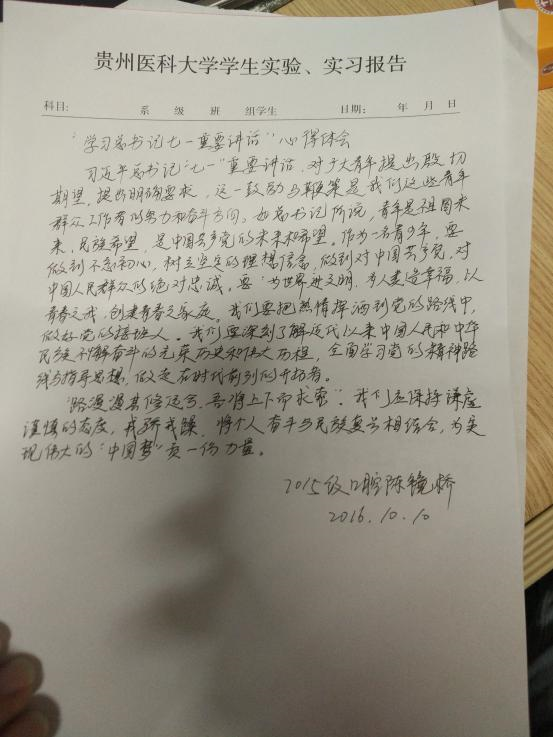 贵州医科大学学生实验、实习报告
科目: 系 级 班 组学生 日期: 年 月 日
“学习总书记七一重要讲话”心得体会
习近平总书记“七一”重要讲话,对于大青年提出殷切
期望,提出明确要求,这一鼓励与鞭策是我们这些青年
群众工作者的努力和奋斗方向,如总书记所说,青年是祖国未
来,民族希望,是中国共产党的未来和希望。作为一名青少年,要
做到不忘初心,树立坚定的理想信念,做到对中国共产党,对
中国人民群众的绝对忠诚。要“为世界进文明,为人类造幸福,以
青春之我,创建青春之家庭。我们要把热情挥洒到党的路线中,
做好党的接班人。我们要深刻了解近代以来中国人民和中华
民族不懈奋斗的光荣历史和伟大历程,全面学习党的精神路
线与指导思想,做走在时代前列的开拓者。
“路漫漫其修远兮,吾将上下而求索”。我们应保持谦虚
谨慎的态度,戒骄戒躁,将个人奋斗与民族复兴相结合,为实
现伟大的“中国梦”贡一份力量。
2015级口腔陈镜桥
2016.10.10